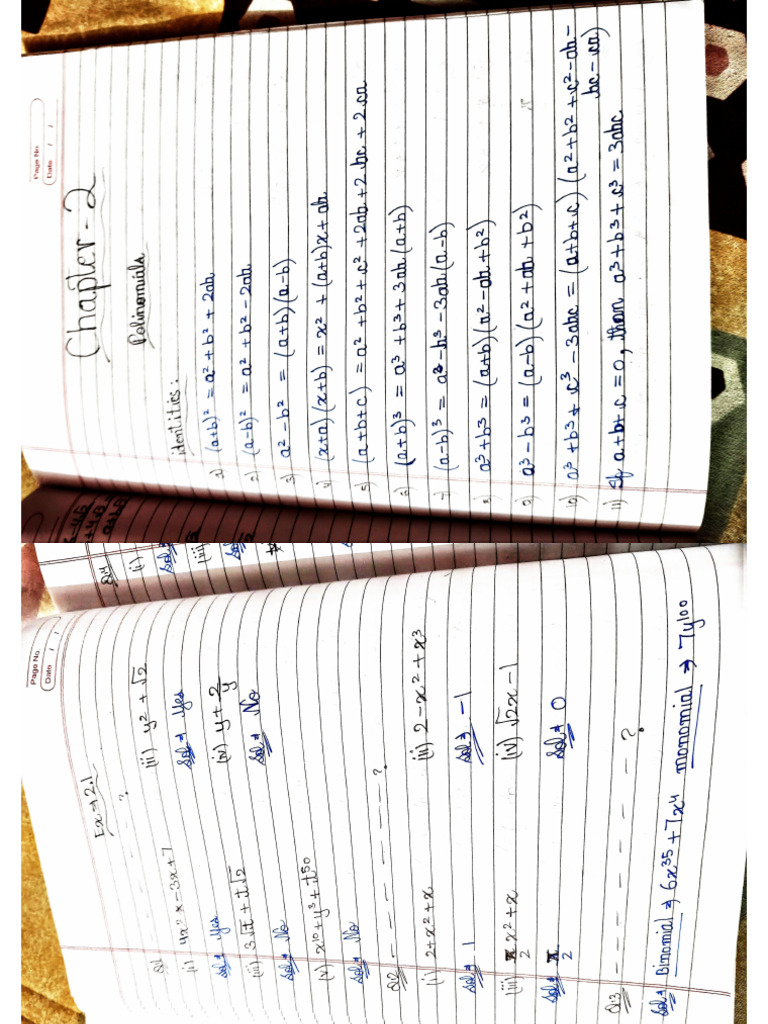 Page No.
Date / /
Chapter - 2
Polinomials
identities:
1) (a+b)² = a² + b² + 2ab
2) (a-b)² = a² + b² - 2ab
3) a² - b² = (a+b) (a-b)
4) (x+a) (x+b) = x² + (a+b)x + ab
5) (a+b+c) = a² + b² + c² + 2ab + 2bc + 2ca
6) (a+b)³ = a³ + b³ + 3ab (a+b)
7) (a-b)³ = a³ - b³ - 3ab (a-b)
8) a³ + b³ = (a+b) (a² - ab + b²)
9) a³ - b³ = (a-b) (a² + ab + b²)
10) a³ + b³ + c³ - 3abc = (a+b+c) (a² + b² + c² - ab -
bc - ca)
11) If a+b+c = 0, then a³ + b³ + c³ = 3abc
Page No.
Date / /
Ex → 2.1
Q1 ?
(i) 4x² - 3x + 7 (iii) y² + √2
Sol⇒ Yes Sol⇒ Yes
(iii) 3√t + t√2 (iv) y + 2/y
Sol⇒ No Sol⇒ No
(v) x¹⁰ + y³ + t⁵⁰
Sol⇒ No
Q2 - - - - - - - ?
(i) 2 + x² + x (ii) 2 - x² + x³
Sol⇒ 1 Sol⇒ -1
(iii) π/2 x² + x (iv) √2x - 1
Sol⇒ π/2 Sol⇒ 0
Q3 - - - - - - - ?
Sol⇒ Binomial ⇒ 6x³⁵ + 7x⁴ monomial ⇒ 7y¹⁰⁰
Q4
(i)
Sol⇒
(iii)